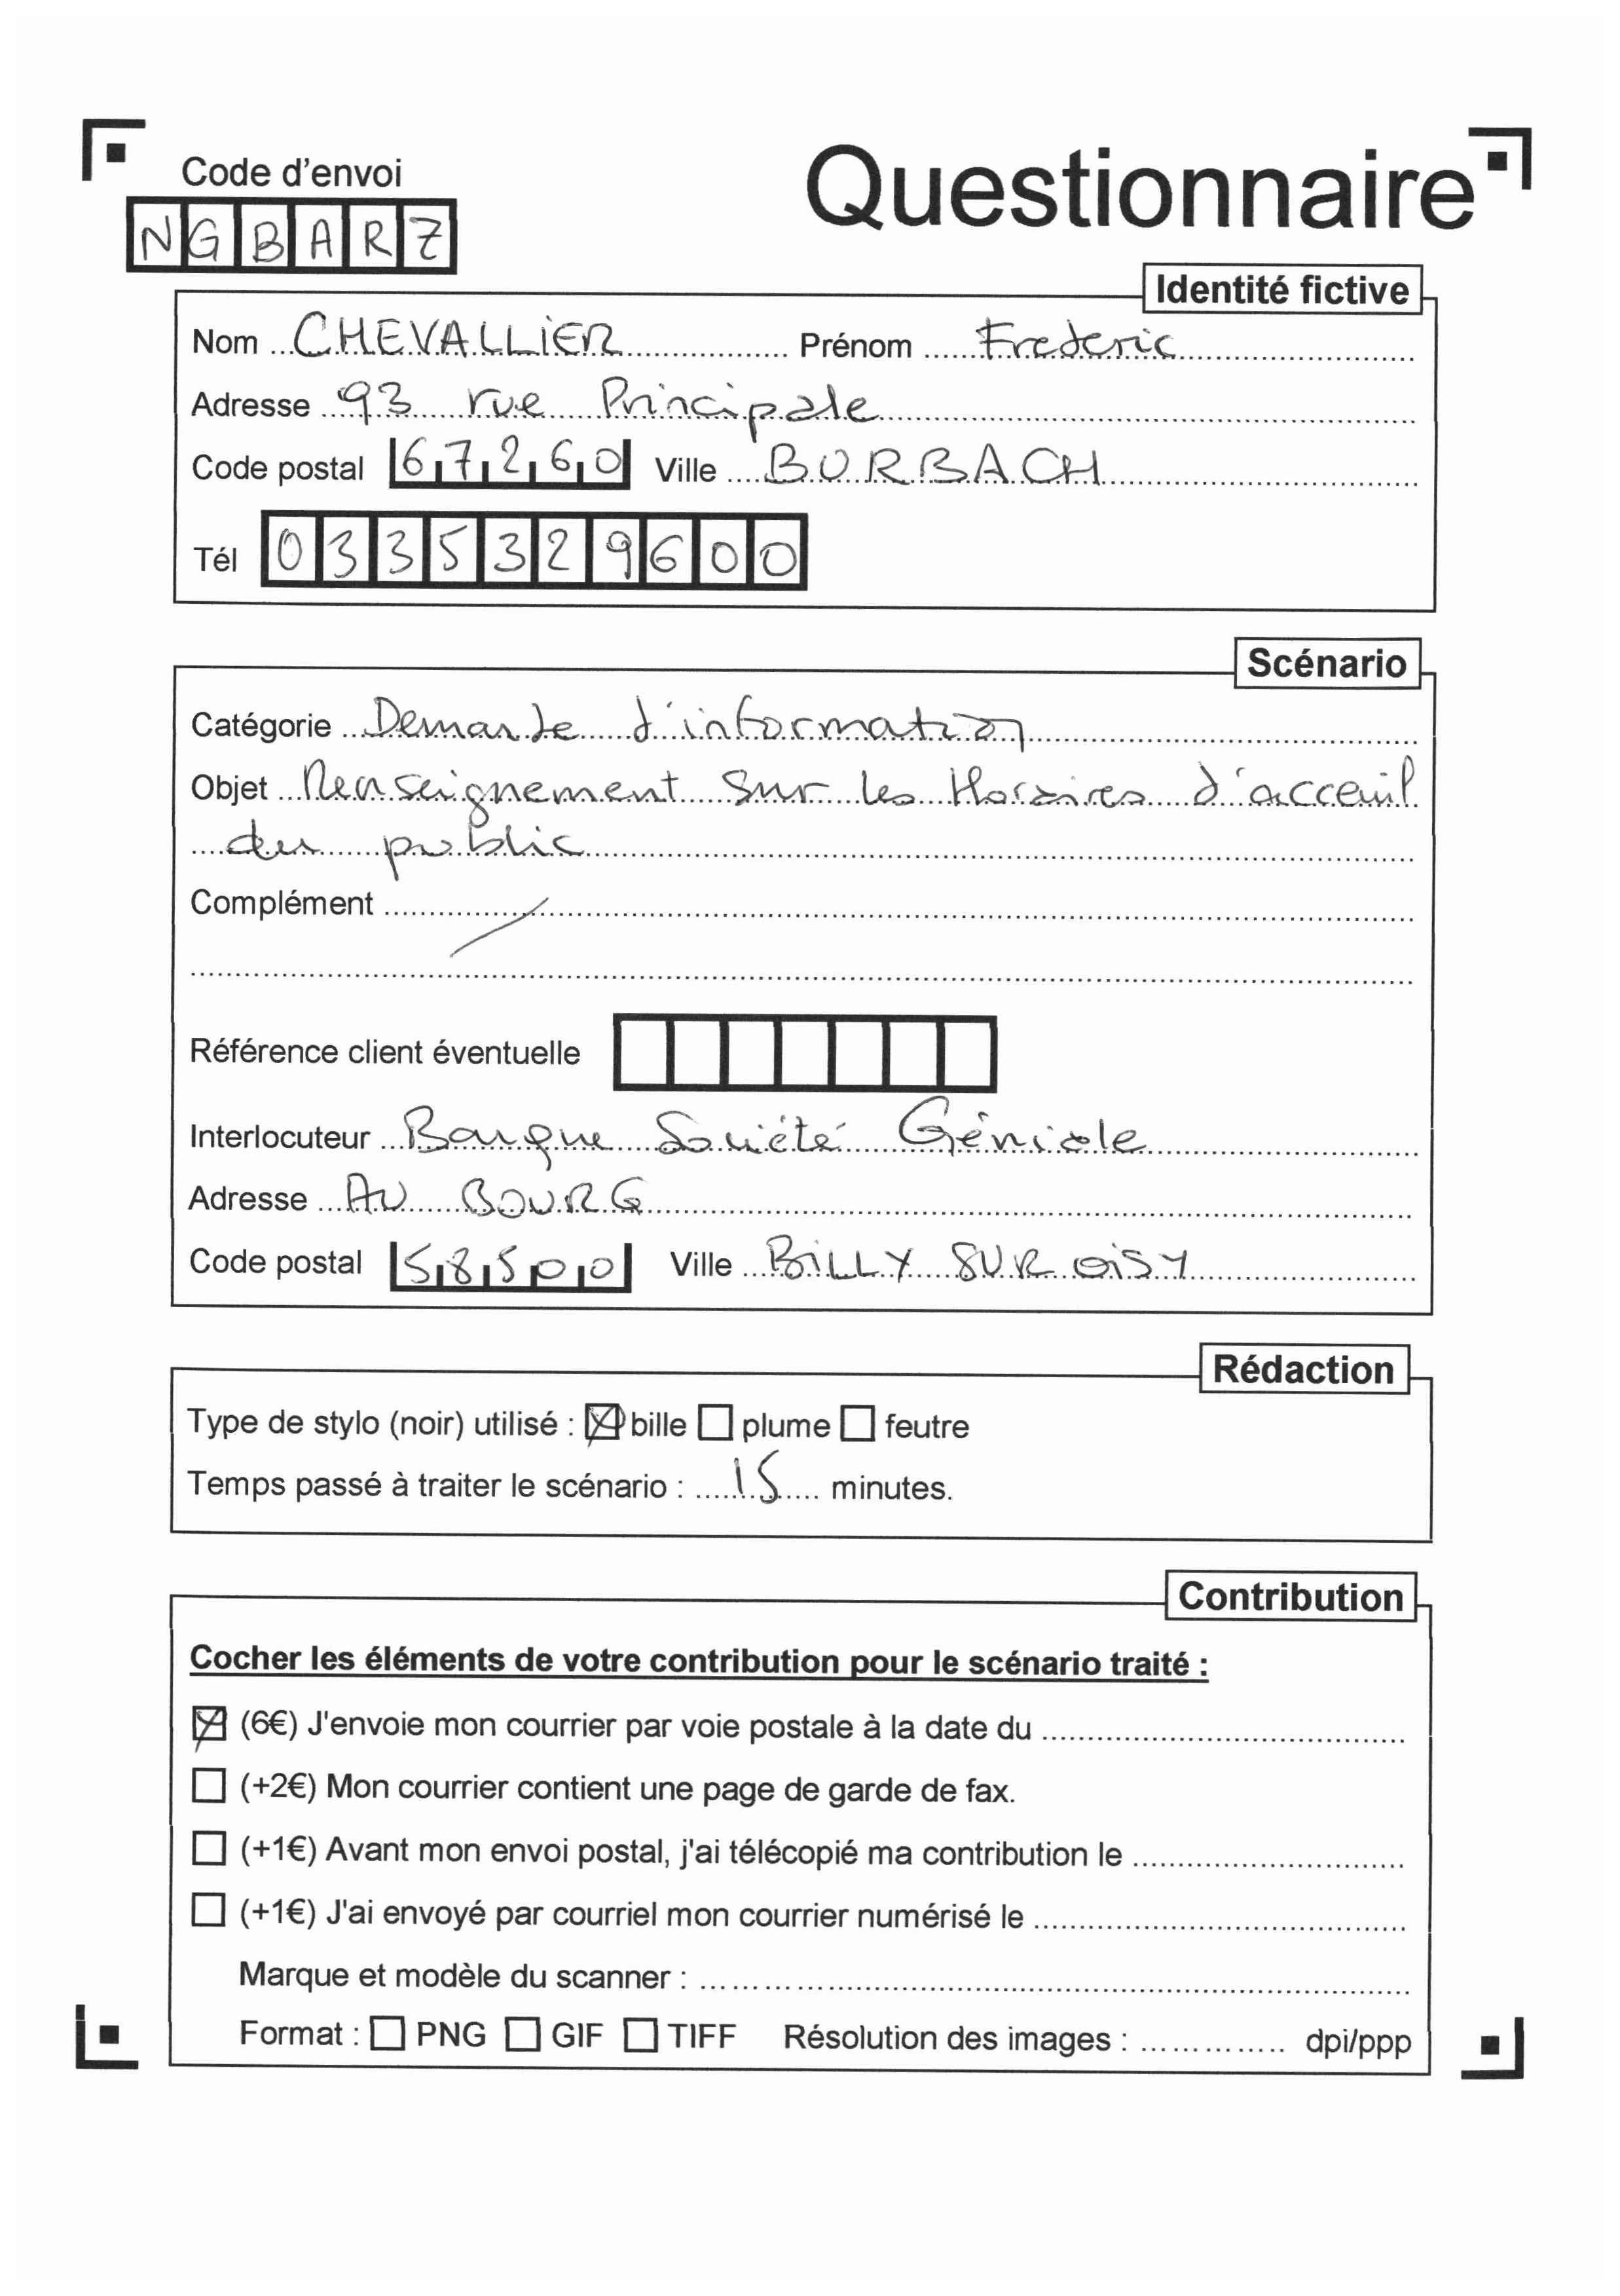 Code d'envoi
Questionnaire
NGBARZ
Identité fictive
Nom CHEVALLIER Prénom Frederic
Adresse 93 rue Principale
Code postal 67260 Ville BURBACH
Tél 0335329600
Scénario
Catégorie Demande d'information
Objet Renseignement sur les Horaires d'acceuil
du public
Complément /
Référence client éventuelle
Interlocuteur Banque Société Géniale
Adresse AU BOURG
Code postal 58500 Ville BILLY SUR OISY
Rédaction
Type de stylo (noir) utilisé : ☒ bille ☐ plume ☐ feutre
Temps passé à traiter le scénario : 15 minutes.
Contribution
Cocher les éléments de votre contribution pour le scénario traité :
☒ (6€) J'envoie mon courrier par voie postale à la date du
☐ (+2€) Mon courrier contient une page de garde de fax.
☐ (+1€) Avant mon envoi postal, j'ai télécopié ma contribution le
☐ (+1€) J'ai envoyé par courriel mon courrier numérisé le
Marque et modèle du scanner :
Format : ☐ PNG ☐ GIF ☐ TIFF Résolution des images : dpi/ppp